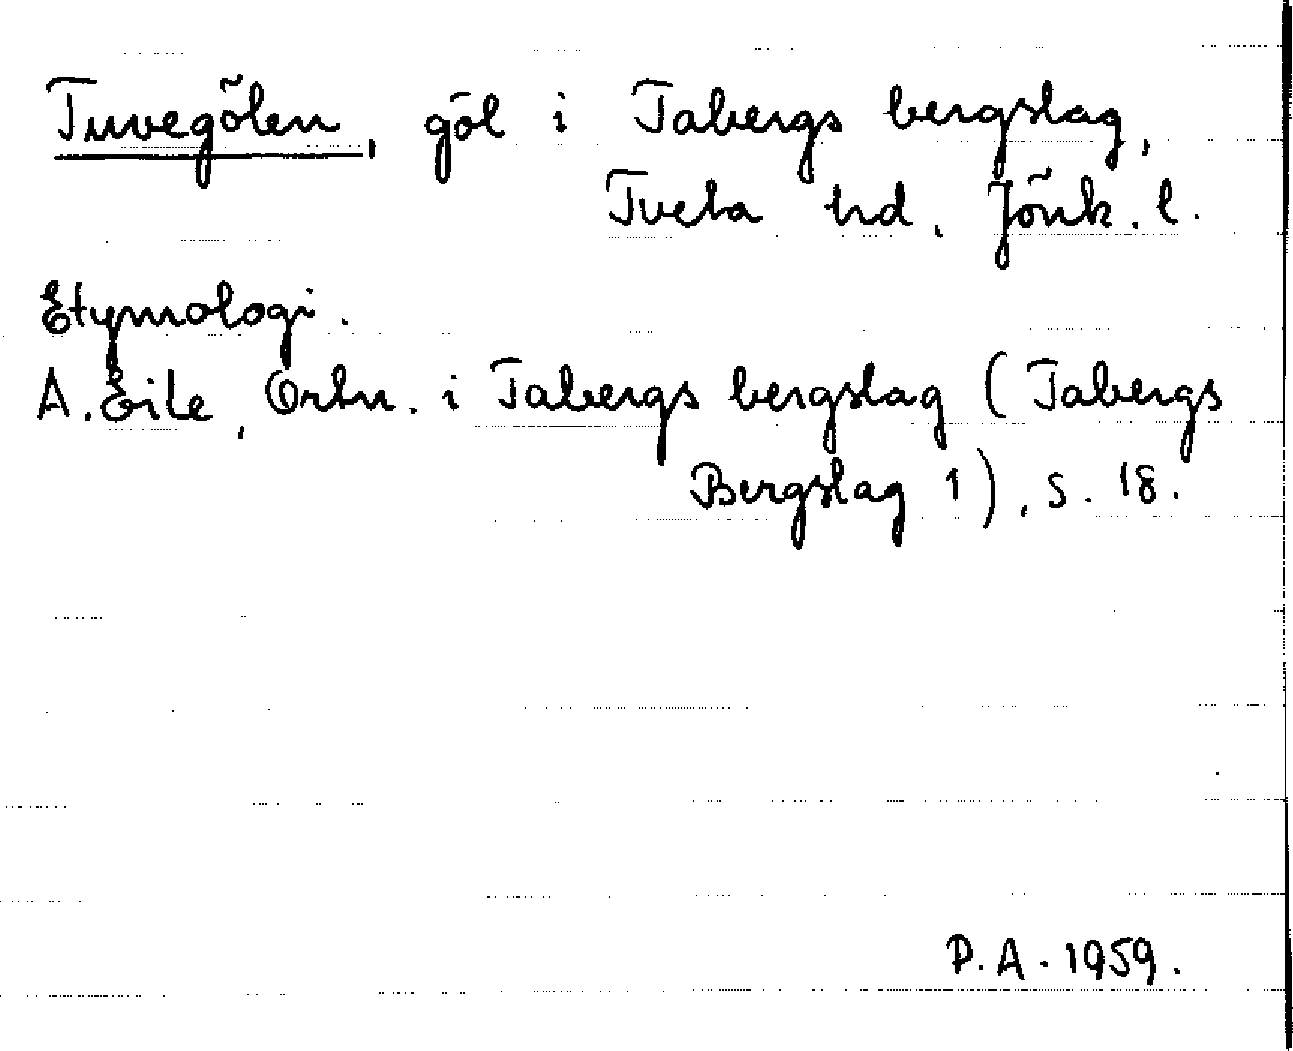 Tuvegölen, göl i Tabergs bergslag,
Tveta hd, Jönk. l.
Etymologi.
A. Eile, Ortn. i Tabergs bergslag (Tabergs
Bergslag 1), s. 18.
P. A. 1959.